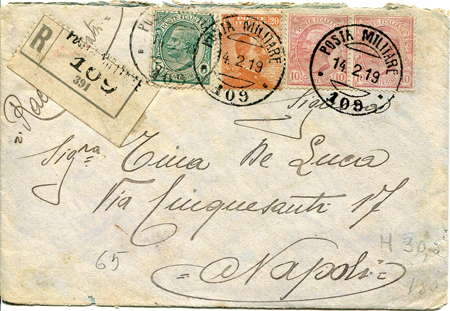 R
POSTA MILITARE
109
391
POSTA MILITARE
14.2.19
109
POSTE ITALIANE
20
POSTA MILITARE
14.2.19
109
10
10
Sig.na Tina De Luca
Via Cinquesanti 17
Napoli
65